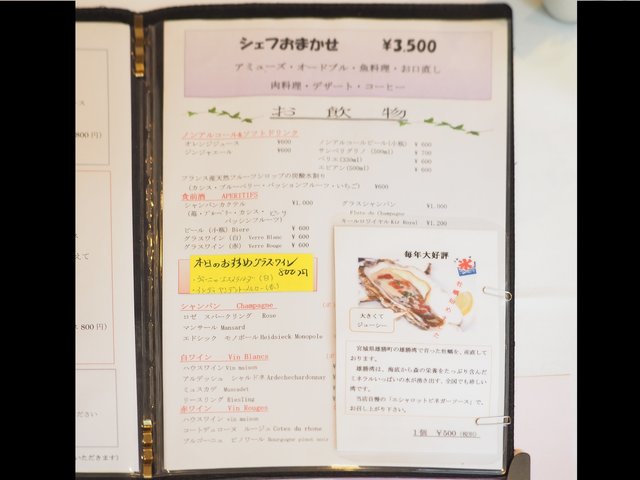 800円)
ス 800円)
ださい
いただきます)
シェフおまかせ ¥3,500
アミューズ・オードブル・魚料理・お口直し
肉料理・デザート・コーヒー
お飲物
ノンアルコール&ソフトドリンク
オレンジジュース ¥600
ジンジャエール ¥600
ノンアルコールビール(小瓶) ¥600
サンペリグリノ (500ml) ¥700
ペリエ(330ml) ¥600
エビアン(500ml) ¥600
フランス産天然フルーツシロップの炭酸水割り
(カシス・ブルーベリー・パッションフルーツ・いちご) ¥600
食前酒 APERITIFS
シャンパンカクテル ¥1.000
パッシンフルーツ)
ビール (小瓶) Biere ¥600
グラスワイン (白) Verre Blanc ¥600
グラスワイン (赤) Verre Rouge ¥600
グラスシャンパン ¥1.000
Flute de Champagne
キールロワイヤル Kir Royal ¥1.200
本日のおすすめグラスワイン
800円
シャンパン Champagne
ロゼ スパークリング Rose
マンサール Mansard
エドシック モノポール Heidsieck Monopole
白ワイン Vin Blancs
ハウスワイン Vin maison
アルデッシュ シャルドネ Ardechechardonnay
ミュスカデ Muscadet
リースリング Riesling
赤ワイン Vin Rouges
ハウスワイン vin maison
コートデュローヌ ルージュ Cotes du rhone
ブルゴーニュ ピノワール Bourgogne pinot noir
毎年大好評
大きくて
ジューシー
宮城県雄勝町の雄勝湾で育った牡蠣を、産直して
おります。
雄勝湾は、海底から森の栄養をたっぷり含んだ
ミネラルいっぱいの水が湧き出す、全国でも珍しい
湾です。
当店自慢の「エシャロットビネガーソース」で、
お召し上がり下さい。
1個 ¥500(税別)